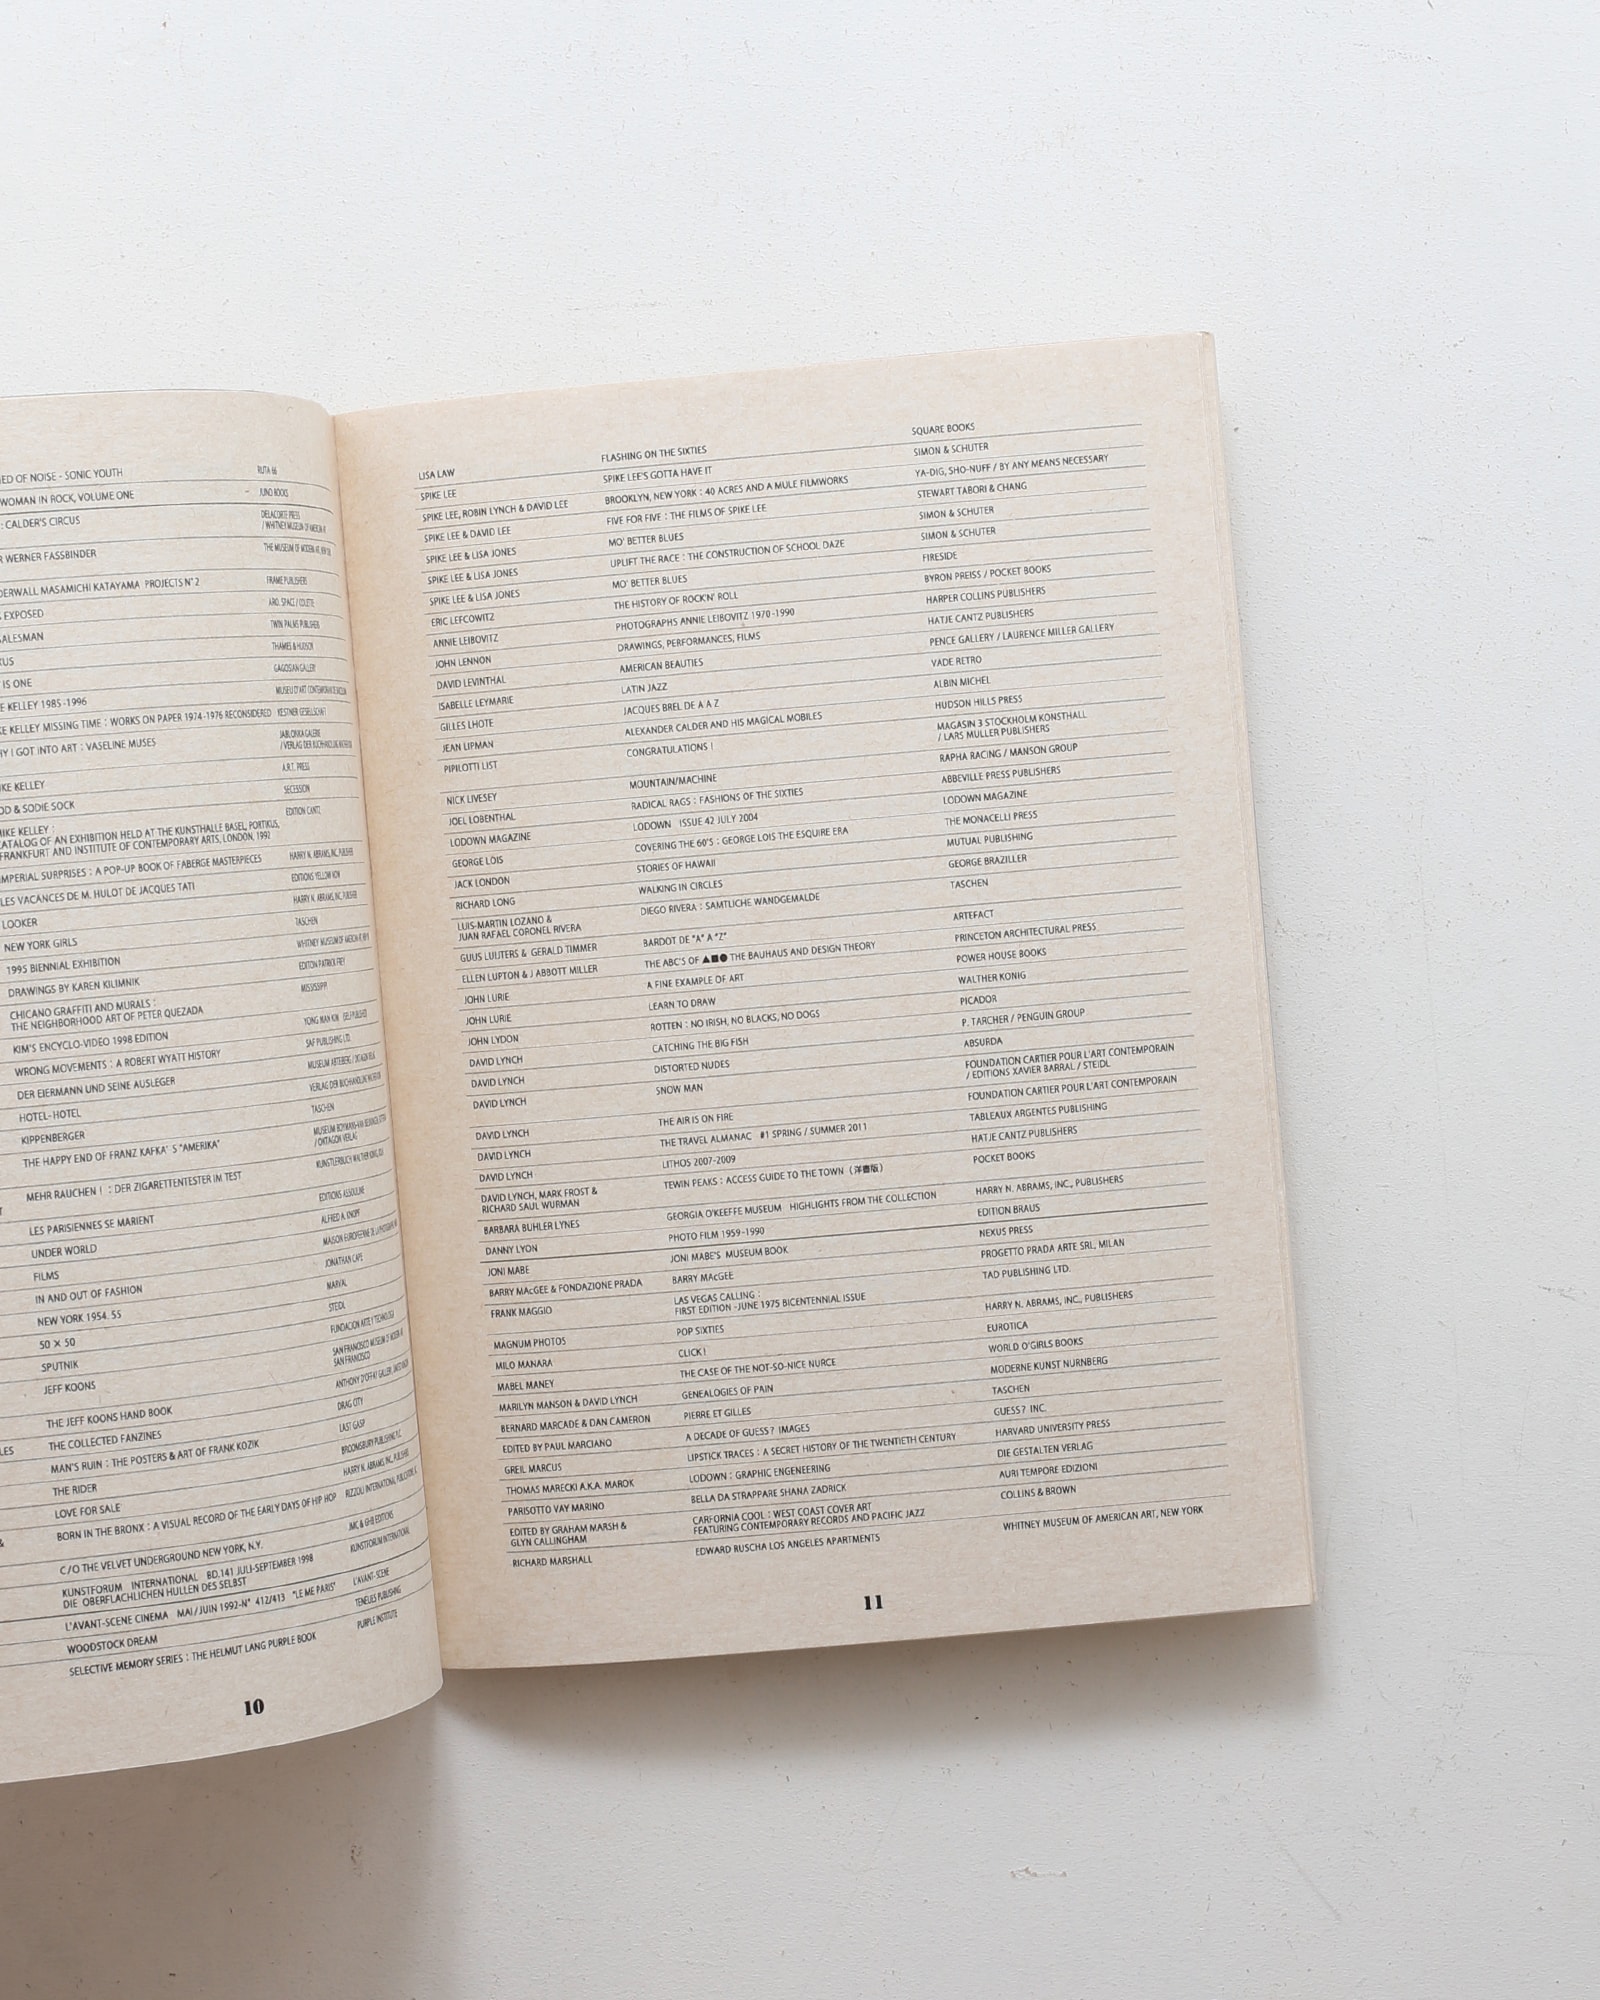 OF NOISE - SONIC YOUTH RUTA 66
WOMAN IN ROCK, VOLUME ONE JUNO BOOKS
: CALDER'S CIRCUS DELACORTE PRESS
/ WHITNEY MUSEUM OF AMERICAN ART
WERNER FASSBINDER THE MUSEUM OF MODERN ART,
MASAMICHI KATAYAMA PROJECTS N° 2 FRAME PUBLISHERS
EXPOSED ARO. SPACE / COLETTE
TWIN PALMS PUBLISHERS
THAMES & HUDSON
IS ONE GAGOSIAN GALLERY
KELLEY 1985-1996
KELLEY MISSING TIME : WORKS ON PAPER 1974-1976 RECONSIDERED KESTNER GESELLSCHAFT
I GOT INTO ART : VASELINE MUSES JABLONKA GALERIE
KELLEY A.R.T. PRESS
& SODIE SOCK SECESSION
KELLEY : EDITION CANTZ
CATALOG OF AN EXHIBITION HELD AT THE KUNSTHALLE BASEL, PORTIKUS,
FRANKFURT AND INSTITUTE OF CONTEMPORARY ARTS, LONDON, 1992
IMPERIAL SURPRISES : A POP-UP BOOK OF FABERGE MASTERPIECES HARRY N. ABRAMS, INC, PUBLISHER
LES VACANCES DE M. HULOT DE JACQUES TATI EDITIONS YELLOW NOW
LOOKER HARRY N. ABRAMS, INC, PUBLISHER
NEW YORK GIRLS TASCHEN
1995 BIENNIAL EXHIBITION WHITNEY MUSEUM OF
DRAWINGS BY KAREN KILIMNIK EDITION PATRICK FREY
CHICANO GRAFFITI AND MURALS : MISSISSIPPI
THE NEIGHBORHOOD ART OF PETER QUEZADA
KIM'S ENCYCLO-VIDEO 1998 EDITION YONG MAN KIM
WRONG MOVEMENTS : A ROBERT WYATT HISTORY SAF PUBLISHING LTD.
DER EIERMANN UND SEINE AUSLEGER
HOTEL-HOTEL
KIPPENBERGER TASCHEN
THE HAPPY END OF FRANZ KAFKA' S "AMERIKA"
/ OKTAGON VERLAG
MEHR RAUCHEN ! : DER ZIGARETTENTESTER IM TEST
LES PARISIENNES SE MARIENT EDITIONS ASSOULINE
UNDER WORLD ALFRED A. KNOPF
FILMS
IN AND OUT OF FASHION JONATHAN CAPE
NEW YORK 1954. 55 MARVAL
50 × 50 STEIDL
SPUTNIK
JEFF KOONS SAN FRANCISCO MUSEUM OF
SAN FRANCISCO
THE JEFF KOONS HAND BOOK
THE COLLECTED FANZINES DRAG CITY
MAN'S RUIN : THE POSTERS & ART OF FRANK KOZIK LAST GASP
THE RIDER
LOVE FOR SALE HARRY N. ABRAMS, INC, PUBLISHERS
& BORN IN THE BRONX : A VISUAL RECORD OF THE EARLY DAYS OF HIP HOP RIZZOLI INTERNATIONAL
C/O THE VELVET UNDERGROUND NEW YORK, N.Y.
KUNSTFORUM INTERNATIONAL BD.141 JULI-SEPTEMBER 1998 KUNSTFORUM INTERNATIONAL
DIE OBERFLACHLICHEN HULLEN DES SELBST
L'AVANT-SCENE CINEMA MAI/JUIN 1992-N° 412/413 "LE ME PARIS" L'AVANT-SCENE
WOODSTOCK DREAM TENEUES PUBLISHING
SELECTIVE MEMORY SERIES : THE HELMUT LANG PURPLE BOOK PURPLE INSTITUTE
10
LISA LAW FLASHING ON THE SIXTIES SQUARE BOOKS
SPIKE LEE SPIKE LEE'S GOTTA HAVE IT SIMON & SCHUTER
SPIKE LEE, ROBIN LYNCH & DAVID LEE BROOKLYN, NEW YORK : 40 ACRES AND A MULE FILMWORKS YA-DIG, SHO-NUFF / BY ANY MEANS NECESSARY
SPIKE LEE & DAVID LEE FIVE FOR FIVE : THE FILMS OF SPIKE LEE STEWART TABORI & CHANG
SPIKE LEE & LISA JONES MO' BETTER BLUES SIMON & SCHUTER
SPIKE LEE & LISA JONES UPLIFT THE RACE : THE CONSTRUCTION OF SCHOOL DAZE SIMON & SCHUTER
SPIKE LEE & LISA JONES MO' BETTER BLUES FIRESIDE
ERIC LEFCOWITZ THE HISTORY OF ROCK'N' ROLL BYRON PREISS / POCKET BOOKS
ANNIE LEIBOVITZ PHOTOGRAPHS ANNIE LEIBOVITZ 1970-1990 HARPER COLLINS PUBLISHERS
JOHN LENNON DRAWINGS, PERFORMANCES, FILMS HATJE CANTZ PUBLISHERS
DAVID LEVINTHAL AMERICAN BEAUTIES PENCE GALLERY / LAURENCE MILLER GALLERY
ISABELLE LEYMARIE LATIN JAZZ VADE RETRO
GILLES LHOTE JACQUES BREL DE A A Z ALBIN MICHEL
JEAN LIPMAN ALEXANDER CALDER AND HIS MAGICAL MOBILES HUDSON HILLS PRESS
PIPILOTTI LIST CONGRATULATIONS ! MAGASIN 3 STOCKHOLM KONSTHALL
/ LARS MULLER PUBLISHERS
NICK LIVESEY MOUNTAIN/MACHINE RAPHA RACING / MANSON GROUP
JOEL LOBENTHAL RADICAL RAGS : FASHIONS OF THE SIXTIES ABBEVILLE PRESS PUBLISHERS
LODOWN MAGAZINE LODOWN ISSUE 42 JULY 2004 LODOWN MAGAZINE
GEORGE LOIS COVERING THE 60'S : GEORGE LOIS THE ESQUIRE ERA THE MONACELLI PRESS
JACK LONDON STORIES OF HAWAII MUTUAL PUBLISHING
RICHARD LONG WALKING IN CIRCLES GEORGE BRAZILLER
LUIS-MARTIN LOZANO & DIEGO RIVERA : SAMTLICHE WANDGEMALDE TASCHEN
JUAN RAFAEL CORONEL RIVERA
GUUS LUIJTERS & GERALD TIMMER BARDOT DE "A" A "Z" ARTEFACT
ELLEN LUPTON & J ABBOTT MILLER THE ABC'S OF ▲■● THE BAUHAUS AND DESIGN THEORY PRINCETON ARCHITECTURAL PRESS
JOHN LURIE A FINE EXAMPLE OF ART POWER HOUSE BOOKS
JOHN LURIE LEARN TO DRAW WALTHER KONIG
JOHN LYDON ROTTEN : NO IRISH, NO BLACKS, NO DOGS PICADOR
DAVID LYNCH CATCHING THE BIG FISH P. TARCHER / PENGUIN GROUP
DAVID LYNCH DISTORTED NUDES ABSURDA
DAVID LYNCH SNOW MAN FOUNDATION CARTIER POUR L'ART CONTEMPORAIN
/ EDITIONS XAVIER BARRAL / STEIDL
DAVID LYNCH THE AIR IS ON FIRE FOUNDATION CARTIER POUR L'ART CONTEMPORAIN
DAVID LYNCH THE TRAVEL ALMANAC #1 SPRING / SUMMER 2011 TABLEAUX ARGENTES PUBLISHING
DAVID LYNCH LITHOS 2007-2009 HATJE CANTZ PUBLISHERS
DAVID LYNCH, MARK FROST & TEWIN PEAKS : ACCESS GUIDE TO THE TOWN (洋書版) POCKET BOOKS
RICHARD SAUL WURMAN
BARBARA BUHLER LYNES GEORGIA O'KEEFFE MUSEUM HIGHLIGHTS FROM THE COLLECTION HARRY N. ABRAMS, INC., PUBLISHERS
DANNY LYON PHOTO FILM 1959-1990 EDITION BRAUS
JONI MABE JONI MABE'S MUSEUM BOOK NEXUS PRESS
BARRY McGEE & FONDAZIONE PRADA BARRY McGEE PROGETTO PRADA ARTE SRL, MILAN
FRANK MAGGIO LAS VEGAS CALLING : TAD PUBLISHING LTD.
FIRST EDITION -JUNE 1975 BICENTENNIAL ISSUE
MAGNUM PHOTOS POP SIXTIES HARRY N. ABRAMS, INC., PUBLISHERS
MILO MANARA CLICK ! EUROTICA
MABEL MANEY THE CASE OF THE NOT-SO-NICE NURCE WORLD O'GIRLS BOOKS
MARILYN MANSON & DAVID LYNCH GENEALOGIES OF PAIN MODERNE KUNST NURNBERG
BERNARD MARCADE & DAN CAMERON PIERRE ET GILLES TASCHEN
EDITED BY PAUL MARCIANO A DECADE OF GUESS? IMAGES GUESS? INC.
GREIL MARCUS LIPSTICK TRACES : A SECRET HISTORY OF THE TWENTIETH CENTURY HARVARD UNIVERSITY PRESS
THOMAS MARECKI A.K.A. MAROK LODOWN : GRAPHIC ENGENEERING DIE GESTALTEN VERLAG
PARISOTTO VAY MARINO BELLA DA STRAPPARE SHANA ZADRICK AURI TEMPORE EDIZIONI
EDITED BY GRAHAM MARSH & CARFORNIA COOL : WEST COAST COVER ART COLLINS & BROWN
GLYN CALLINGHAM FEATURING CONTEMPORARY RECORDS AND PACIFIC JAZZ
RICHARD MARSHALL EDWARD RUSCHA LOS ANGELES APARTMENTS WHITNEY MUSEUM OF AMERICAN ART, NEW YORK
11